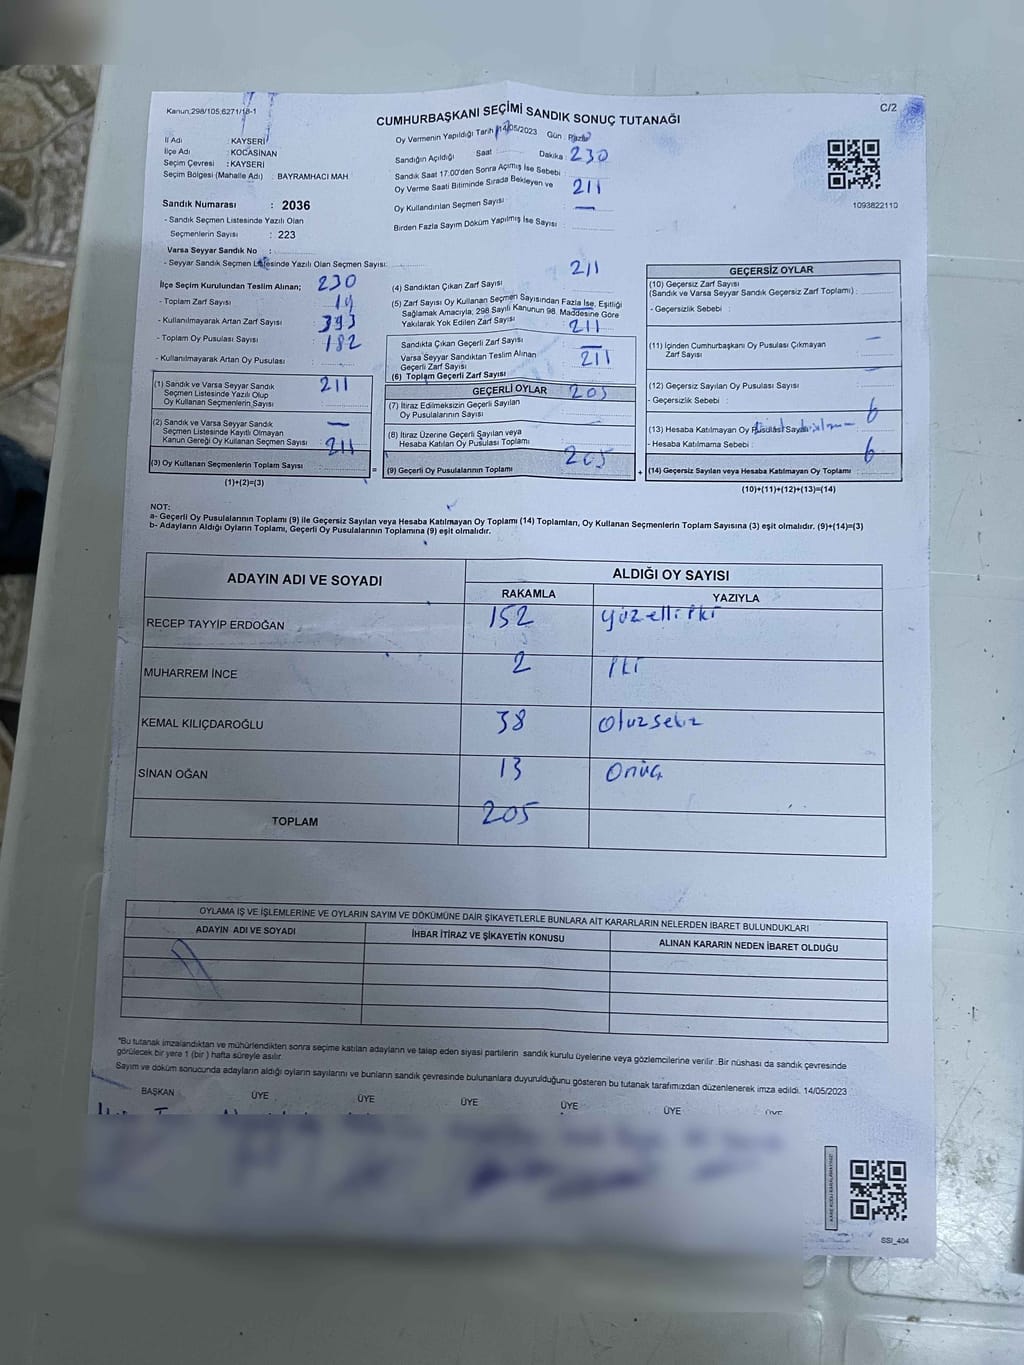 Kanun:298/105;6271/18-1
C/2
CUMHURBAŞKANI SEÇİMİ SANDIK SONUÇ TUTANAĞI
İl Adı : KAYSERİ
İlçe Adı : KOCASİNAN
Seçim Çevresi : KAYSERİ
Seçim Bölgesi (Mahalle Adı) : BAYRAMHACI MAH
Oy Vermenin Yapıldığı Tarih 14/05/2023 Gün Pazar
Sandığın Açıldığı Saat Dakika 230
Sandık Saat 17.00'den Sonra Açılmış İse Sebebi :
Oy Verme Saati Bitiminde Sırada Bekleyen ve 211
Oy Kullandırılan Seçmen Sayısı —
Birden Fazla Sayım Döküm Yapılmış İse Sayısı :
1093822110
Sandık Numarası : 2036
- Sandık Seçmen Listesinde Yazılı Olan
Seçmenlerin Sayısı : 223
Varsa Seyyar Sandık No :
- Seyyar Sandık Seçmen Listesinde Yazılı Olan Seçmen Sayısı:
İlçe Seçim Kurulundan Teslim Alınan; 230
- Toplam Zarf Sayısı 19
- Kullanılmayarak Artan Zarf Sayısı 393
- Toplam Oy Pusulası Sayısı 182
- Kullanılmayarak Artan Oy Pusulası
(1) Sandık ve Varsa Seyyar Sandık 211
Seçmen Listesinde Yazılı Olup
Oy Kullanan Seçmenlerin Sayısı
(2) Sandık ve Varsa Seyyar Sandık —
Seçmen Listesinde Kayıtlı Olmayan
Kanun Gereği Oy Kullanan Seçmen Sayısı 211
(3) Oy Kullanan Seçmenlerin Toplam Sayısı
(1)+(2)=(3)
211
(4) Sandıktan Çıkan Zarf Sayısı
(5) Zarf Sayısı Oy Kullanan Seçmen Sayısından Fazla İse, Eşitliği
Sağlamak Amacıyla; 298 Sayılı Kanunun 98. Maddesine Göre
Yakılarak Yok Edilen Zarf Sayısı 211
Sandıkta Çıkan Geçerli Zarf Sayısı —
Varsa Seyyar Sandıktan Teslim Alınan 211
Geçerli Zarf Sayısı
(6) Toplam Geçerli Zarf Sayısı
GEÇERLİ OYLAR 205
(7) İtiraz Edilmeksizin Geçerli Sayılan
Oy Pusulalarının Sayısı
(8) İtiraz Üzerine Geçerli Sayılan veya
Hesaba Katılan Oy Pusulası Toplamı 205
= (9) Geçerli Oy Pusulalarının Toplamı
GEÇERSİZ OYLAR
(10) Geçersiz Zarf Sayısı
(Sandık ve Varsa Seyyar Sandık Geçersiz Zarf Toplamı) :
- Geçersizlik Sebebi :
(11) İçinden Cumhurbaşkanı Oy Pusulası Çıkmayan —
Zarf Sayısı
(12) Geçersiz Sayılan Oy Pusulası Sayısı —
- Geçersizlik Sebebi : 6
(13) Hesaba Katılmayan Oy Pusulası Sayısı
- Hesaba Katılmama Sebebi : 6
+ (14) Geçersiz Sayılan veya Hesaba Katılmayan Oy Toplamı
(10)+(11)+(12)+(13)=(14)
NOT:
a- Geçerli Oy Pusulalarının Toplamı (9) ile Geçersiz Sayılan veya Hesaba Katılmayan Oy Toplamı (14) Toplamları, Oy Kullanan Seçmenlerin Toplam Sayısına (3) eşit olmalıdır. (9)+(14)=(3)
b- Adayların Aldığı Oyların Toplamı, Geçerli Oy Pusulalarının Toplamına (9) eşit olmalıdır.
ADAYIN ADI VE SOYADI
ALDIĞI OY SAYISI
RAKAMLA YAZIYLA
RECEP TAYYİP ERDOĞAN 152 yüzelliiki
MUHARREM İNCE 2 iki
KEMAL KILIÇDAROĞLU 38 Otuzsekiz
SİNAN OĞAN 13 Onüç
TOPLAM 205
OYLAMA İŞ VE İŞLEMLERİNE VE OYLARIN SAYIM VE DÖKÜMÜNE DAİR ŞİKAYETLERLE BUNLARA AİT KARARLARIN NELERDEN İBARET BULUNDUKLARI
ADAYIN ADI VE SOYADI İHBAR İTİRAZ VE ŞİKAYETİN KONUSU ALINAN KARARIN NEDEN İBARET OLDUĞU
*Bu tutanak imzalandıktan ve mühürlendikten sonra seçime katılan adayların ve talep eden siyasi partilerin sandık kurulu üyelerine veya gözlemcilerine verilir .Bir nüshası da sandık çevresinde
görülecek bir yere 1 (bir ) hafta süreyle asılır.
Sayım ve döküm sonucunda adayların aldığı oyların sayılarını ve bunların sandık çevresinde bulunanlara duyurulduğunu gösteren bu tutanak tarafımızdan düzenlenerek imza edildi. 14/05/2023
BAŞKAN ÜYE ÜYE ÜYE ÜYE ÜYE ÜYE
SSI_404